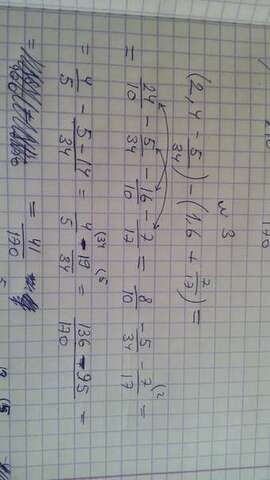 N 3
(2,4 - 5/34) - (1,6 + 7/17) =
= 24/10 - 5/34 - 16/10 - 7/17 = 8/10 - 5/34 - 7/17 (2 =
= 4/5 - 5-14/34 = 4/5 (34 - 19/34 (5 = 136-95/170 =
= = 41/170